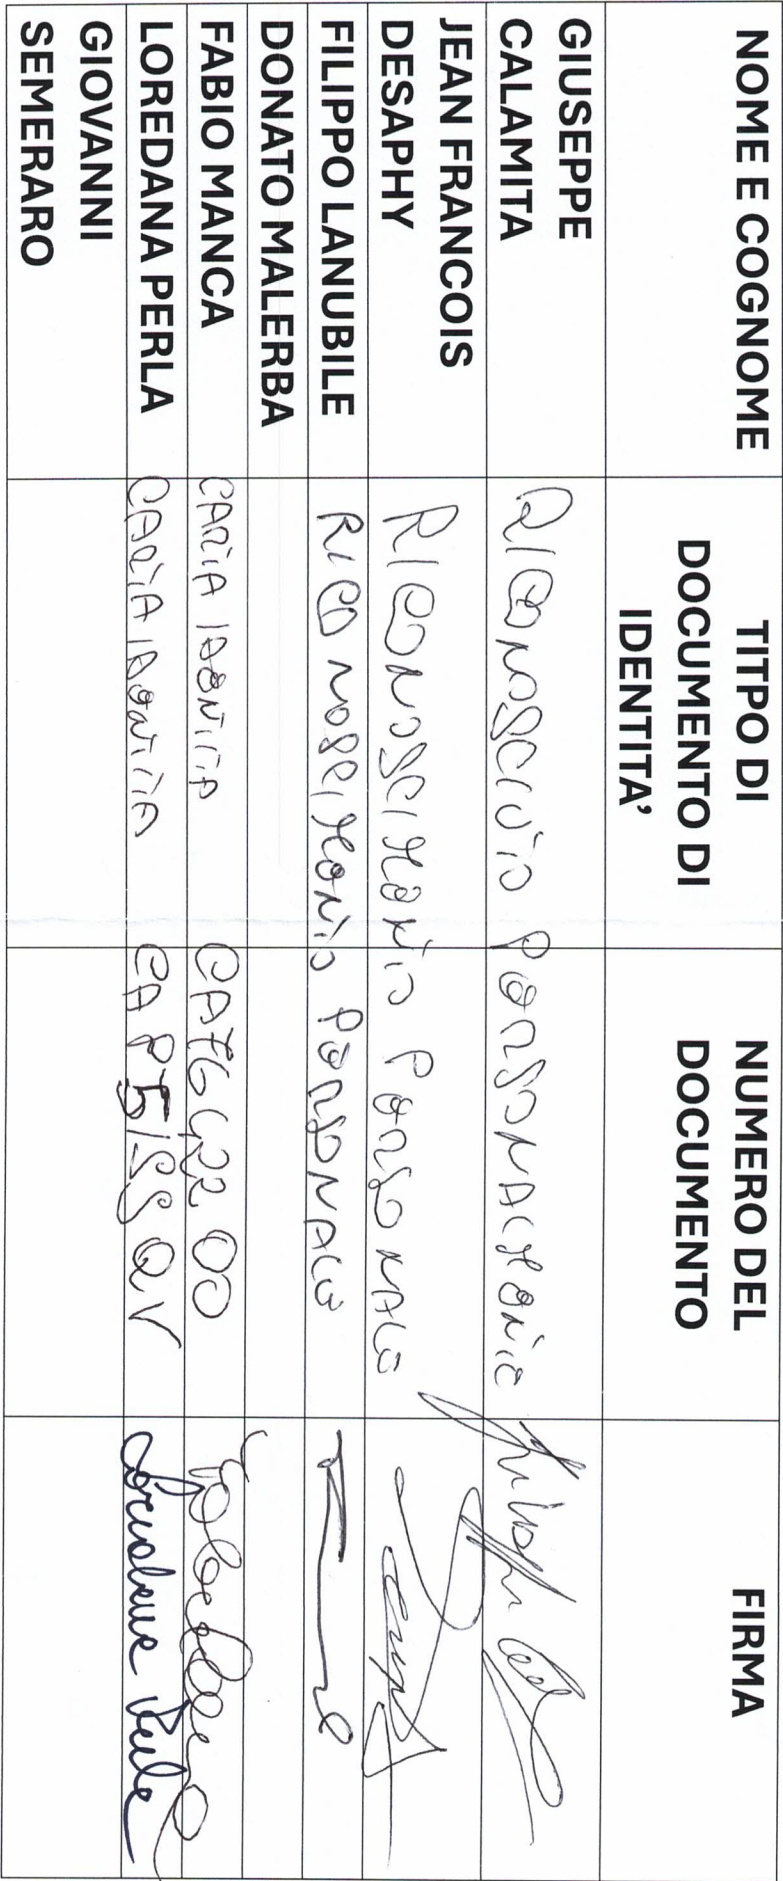 NOME E COGNOME
TITPO DI
DOCUMENTO DI
IDENTITA’
NUMERO DEL
DOCUMENTO
FIRMA
GIUSEPPE
CALAMITA
RICONOSCIUTO PERSONALMENTE
JEAN FRANCOIS
DESAPHY
RICONOSCIMENTO PERSONALE
FILIPPO LANUBILE
RICONOSCIMENTO PERSONALE
DONATO MALERBA
FABIO MANCA
CARTA IDENTITA
LOREDANA PERLA
CARTA IDENTITA
Loredana Perla
GIOVANNI
SEMERARO